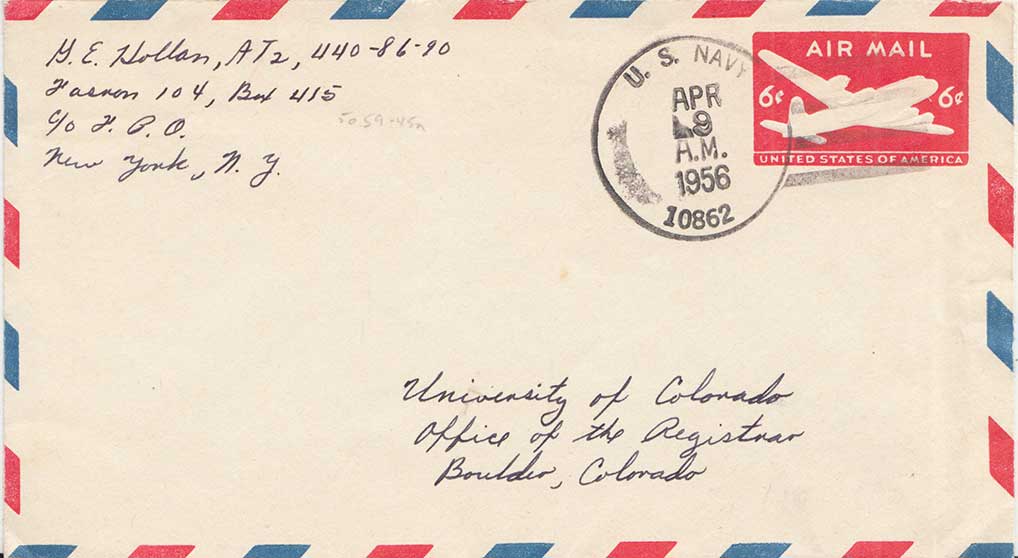 G. E. Hollan, AT2, 440-86-90
Fasron 104, Box 415
c/o F. P. O.
New York, N. Y.
U. S. NAVY
APR
9
A.M.
1956
10862
AIR MAIL
6¢ 6¢
UNITED STATES OF AMERICA
University of Colorado
Office of the Registrar
Boulder, Colorado